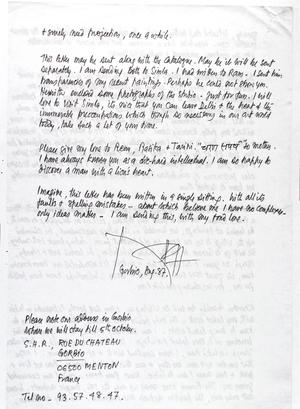 & lonely and projection, once a while.
This letter may be sent along with the catalogue. May be it will be sent
separately. I am sending both to Simla. I had written to Ram. I sent him
transparencies of my recent paintings. Perhaps he could not show you.
Herewith enclosed some photographs of the studio - just for fun. I will
love to visit Simla, its nice that you can leave Delhi & the heart & its
immovable preoccupations which though be necessary in our art world
today, take such a lot of your time.
Please give my love to Reem, &
I have always known you as a die-hard intellectual. I am so happy to
discover a man with a lion's heart.
Imagine, this letter has been written in a single sitting. With all its
faults & spelling mistakes - about which believe me I have no complexes.
only ideas matter - I am sending this, with my fond love.
Gorbio, Aug. 87.
Please note our address in Gorbio
where we will stay till 5th October.
S.H.R., RUE DU CHATEAU
GORBIO
06500 MENTON
France
Tel no - 93.57.48.47.